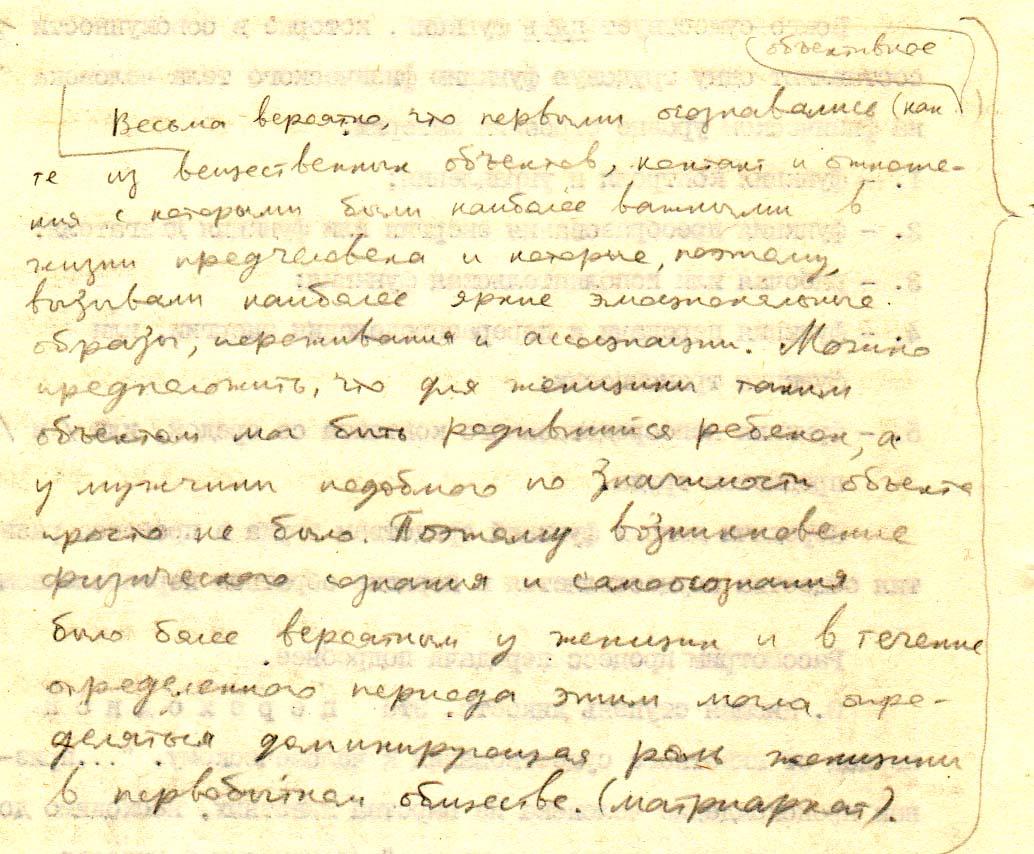 объективное
Весьма вероятно, что первыми осознавались (как
те из вещественных объектов, контакт и отноше-
ния с которыми были наиболее важными в
жизни предчеловека и которые, поэтому,
вызывали наиболее яркие эмоциональные
образы, переживания и ассоциации. Можно
предположить, что для женщины таким
объектом мог быть родившийся ребенок, а
у мужчины подобного по значимости объекта
просто не было Поэтому возникновение
физического сознания и самоосознания
было более вероятным у женщин и в течение
определенного периода этим могла опре-
деляться доминирующая роль женщины
в первобытном обществе. (матриархат).